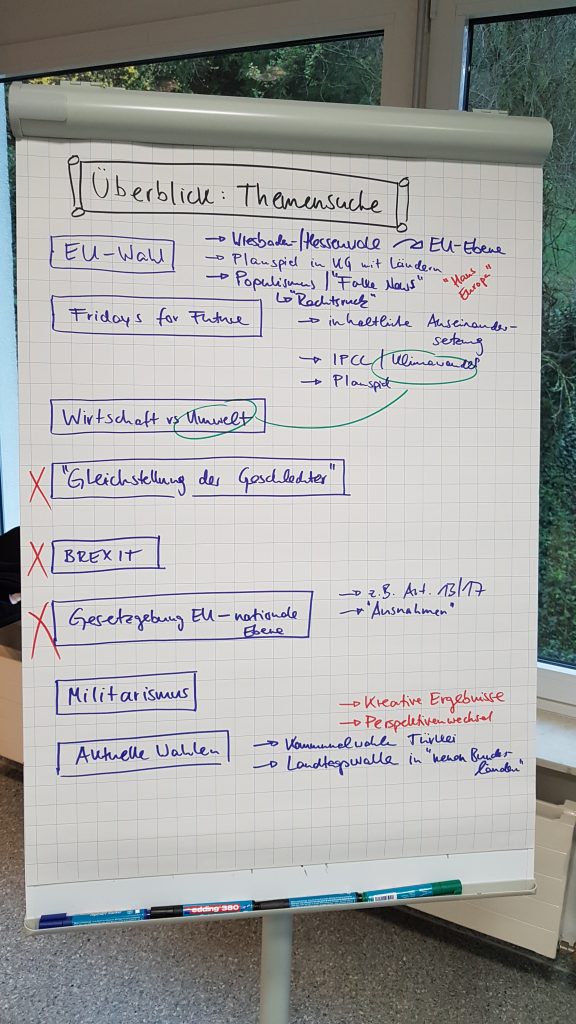 Überblick: Themensuche
EU-Wahl
→ Wiesbaden-/Hessenwahl → EU-Ebene
→ Planspiel in UG mit Ländern
→ Populismus / "Fake News"
↳ "Rechtsruck"
"Haus Europa"
Fridays for Future
→ inhaltliche Auseinander-
setzung
→ IPCC / Klimawandel
→ Planspiel
Wirtschaft vs Umwelt
X "Gleichstellung der Geschlechter"
X BREXIT
X Gesetzgebung EU-nationale
Ebene
→ z.B. Art. 13/17
→ "Ausnahmen"
Militarismus
→ Kreative Ergebnisse
→ Perspektivenwechsel
Aktuelle Wahlen
→ Kommunalwahle Türkei
→ Landtagswahle in "neuen Bundes-
ländern"
edding 380